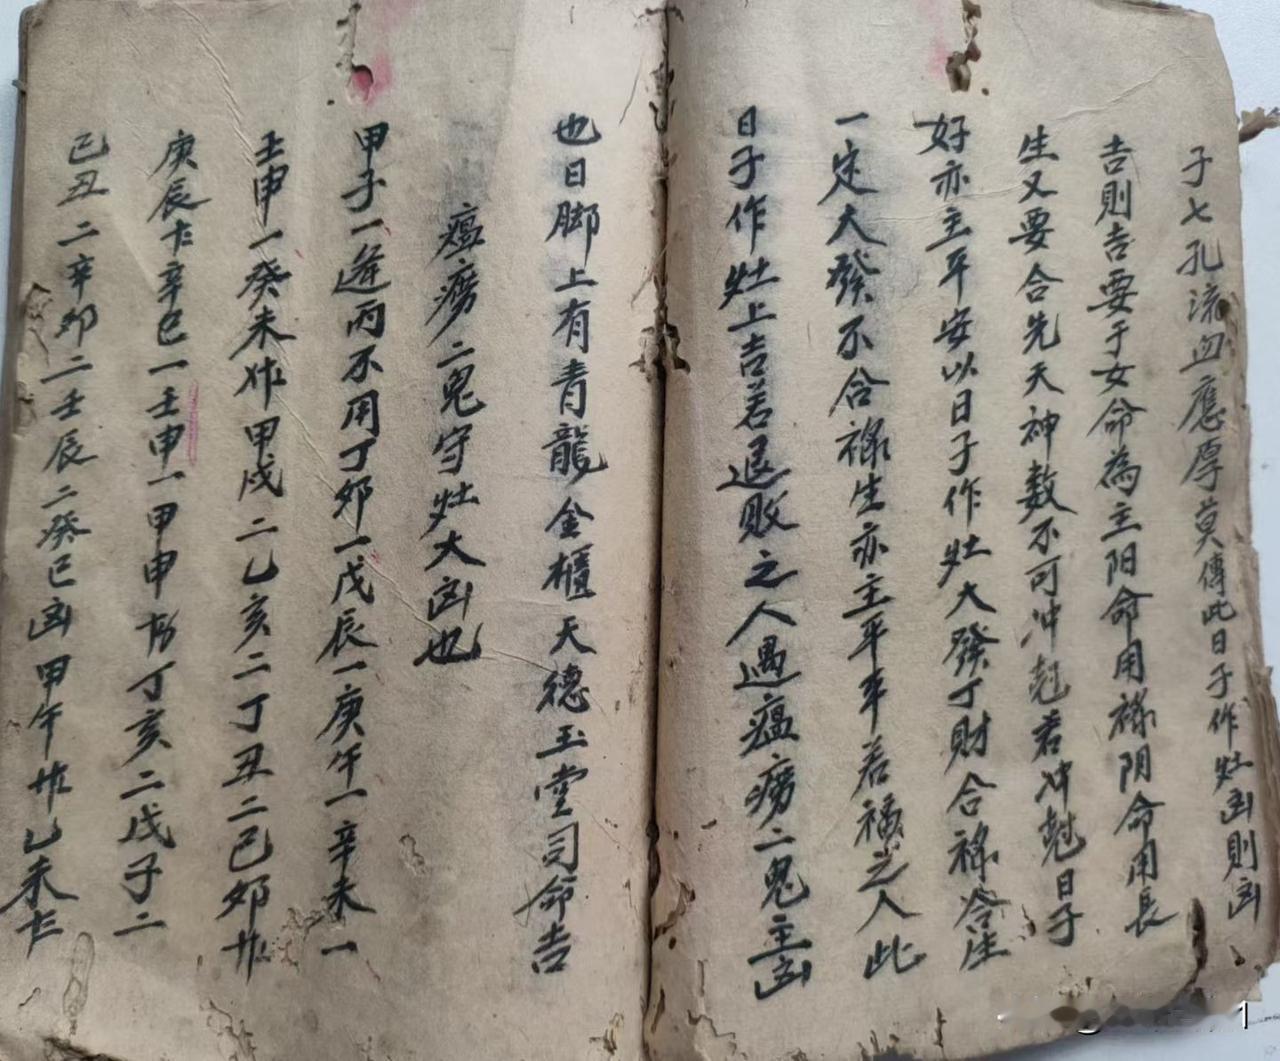 子七孔流血應厚莫傳此日子作灶凶則凶
吉則吉要于女命為主阳命用禄阴命用長
生又要合先天神数不可冲尅若冲尅日子
好亦主平安以日子作灶大發丁財合禄合生
一定大發不合禄生亦主平平若福之人此
日子作灶上吉若退败之人遇瘟癆二鬼主凶
也日脚上有青龍金櫃天德玉堂司命吉
瘟癆二鬼守灶大凶也
甲子一逢丙不用丁卯一戊辰一庚午一辛未一
壬申一癸未作甲戌二乙亥二丁丑二己卯
庚辰 辛巳一壬申一甲申 丁亥二戊子二
己丑二辛卯二壬辰二癸巳凶甲午 乙未